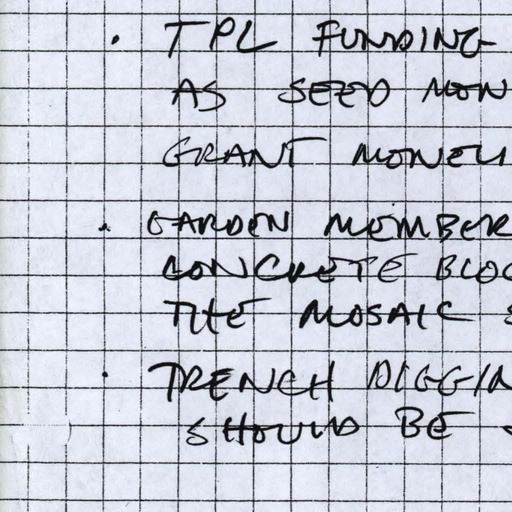 · TPL FUNDING
AS SEED MON
GRANT MONEY
· GARDEN MEMBER
CONCRETE BLOC
THE MOSAIC S
· TRENCH DIGGIN
SHOULD BE